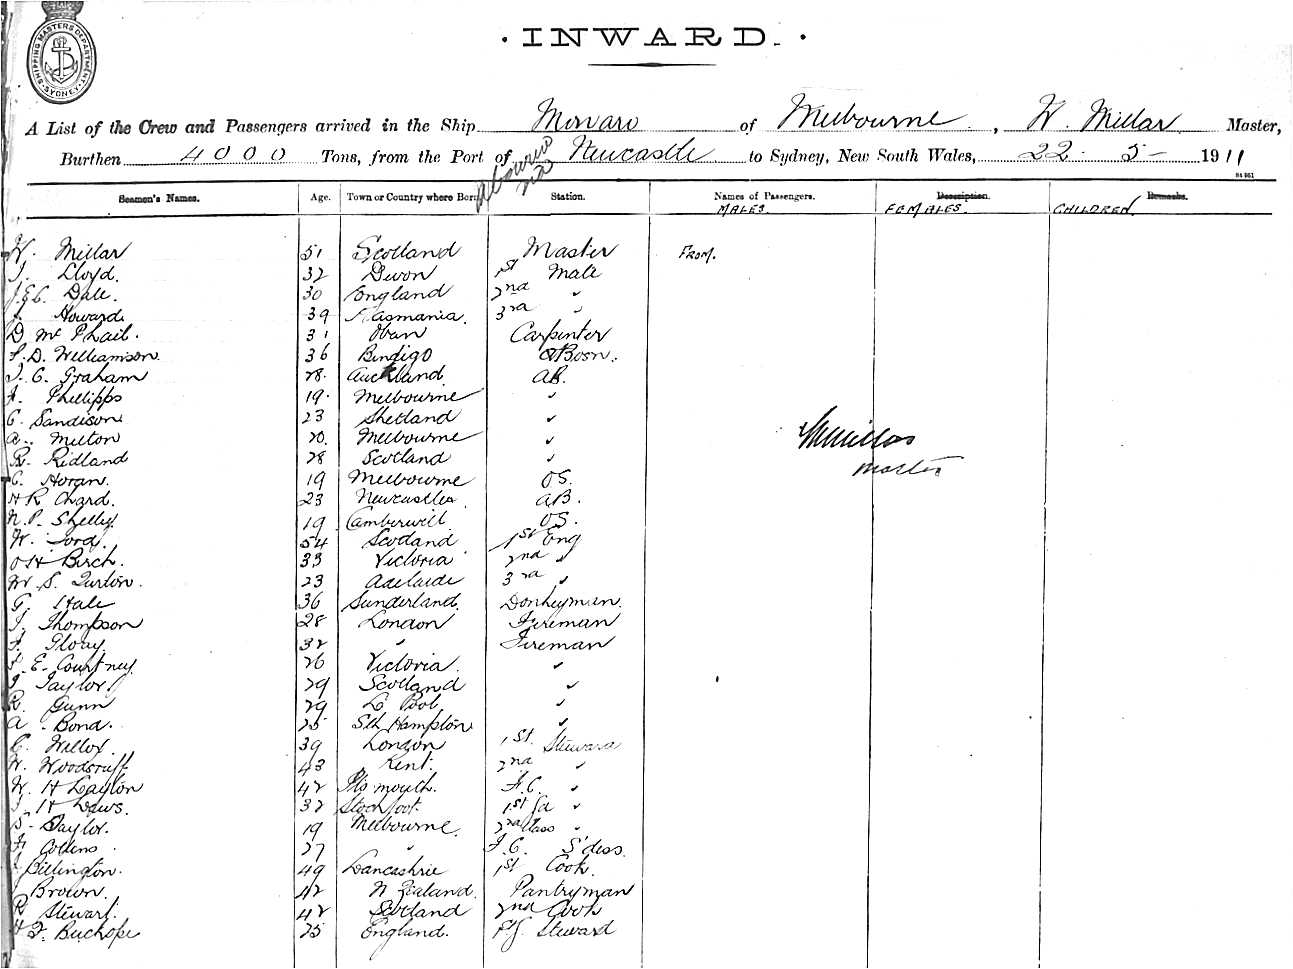 SHIPPING MASTERS DEPARTMENT SYDNEY
INWARD.
A List of the Crew and Passengers arrived in the Ship Monaro of Melbourne, W. Millar Master,
Burthen 4000 Tons, from the Port of Newcastle to Sydney, New South Wales, 22 - 5 - 1911
Seamen's Names. Age. Town or Country where Born Station. Names of Passengers. Description. Remarks.
MALES. FEMALES. CHILDREN.
W. Millar 51 Scotland Master FROM.
Lloyd. 32 Devon 1st Mate
Dale. 30 England 2nd "
Howard 39 Tasmania. 3rd "
D. McPhail. 31 Oban Carpenter
F. D. Williamson 36 Bendigo Bosn.
J. C. Graham 28. Auckland AB.
Phillipps 19. Melbourne "
C. Sandison 23 Shetland "
A. Melton 20. Melbourne "
R. Ridland 28 Scotland "
C. Horan. 19 Melbourne OS.
H R Chard. 23 Newcastle AB.
N. P. Shelly. 19 Camberwell OS.
W. Ford. 54 Scotland 1st Eng
O H Birch. 33 Victoria 2nd "
W. S. Turton. 23 Adelaide 3rd "
G. Hale 36 Sunderland. Donkeyman.
J. Thompson 28 London Fireman
32 " Fireman
F. E. Courtney 26 Victoria. "
J. Taylor 29 Scotland "
R. Gunn 29 L'Pool "
A. Bond. 25 Sth Hampton "
C. Willox. 39 London 1st Steward
W. Woodruff 43 Kent. 2nd "
W. H Layton 42 Plymouth. F.C. "
J. H Daws. 32 1st Sa "
S. Taylor. 19 Melbourne. 2nd Class "
Collins 27 " F.C. S'dess.
Billington. 49 Lancashrie 1st Cook.
Brown. 42 N Zealand. Pantryman
R Stewart. 42 Scotland 2nd Cook
H F. Buchope 25 England. Steward
W Millar
Master